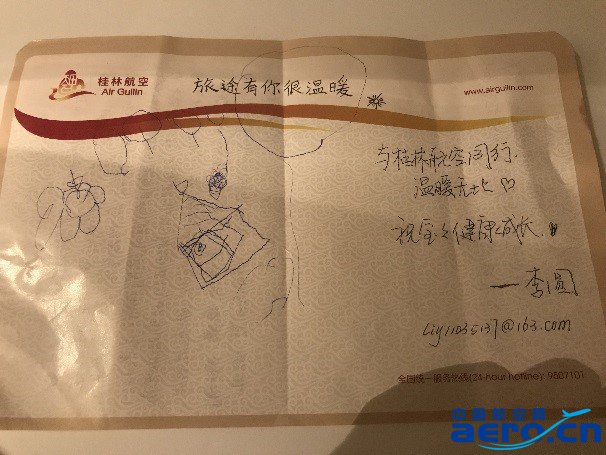 桂林航空
Air Guilin
旅途有你很温暖
www.airguilin.com
与桂林航空同行.
温暖无比♡
祝宝宝健康成长.
—李圆
全国统一服务热线(24-hour hotline): 9507101
aero.cn